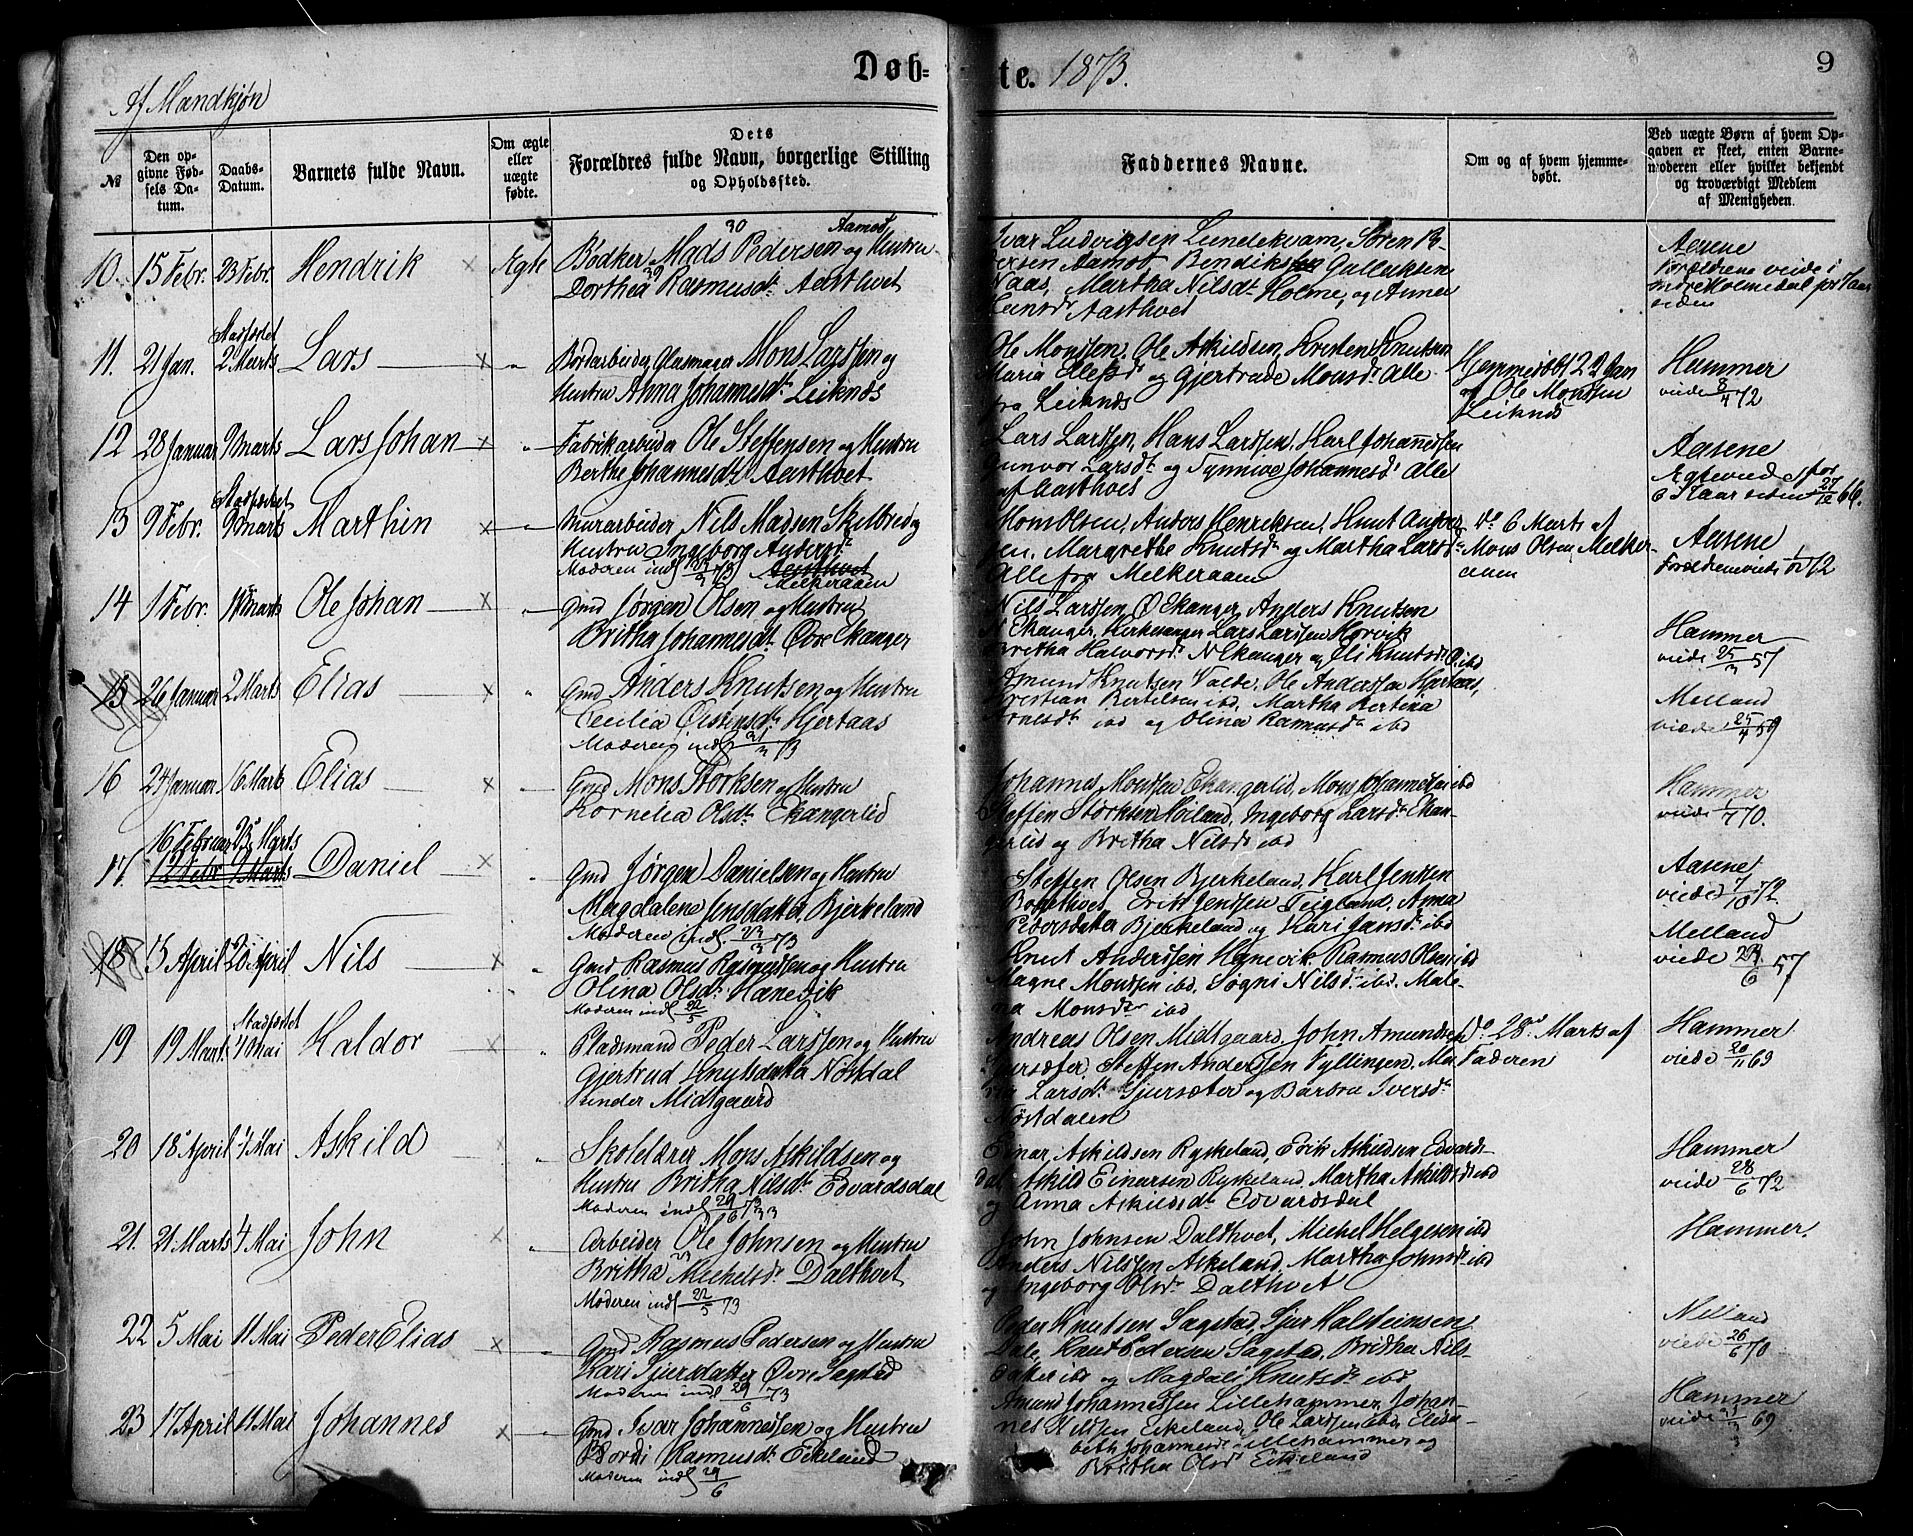 Døb= te. 1873.
9
Af Mandkjøn
№
Den op-
givne Fød-
sels Da-
tum.
Daabs-
Datum.
Barnets fulde Navn.
Om ægte
eller
uægte
fødte.
Dets
Forældres fulde Navn, borgerlige Stilling
og Opholdssted.
Faddernes Navne.
Om og af hvem hjemme-
døbt.
Ved uægte Børn af hvem Op-
gaven er skeet, enten Barne-
moderen eller hvilket bekjendt
og troværdigt Medlem
af Menigheden.
10. 15 Febr. 23 Febr. Hendrik × Ægte
Bødker Mads 30 Pedersen Aamot og Hustru
Dorthea 39 Rasmusdt. Aasthvet
Ivar Ludvigsen Lundekvam, Søren Pe-
dersen Aamot Bendik Gulliksen
Naas, Martha Nilsdt. Holme, og Anna
Aasthvet
Aasene
Forældrene viede i
siden
11. 21 Jan. Stadfæstet 2 Marts Lars × "
Bordarbeider Glasmager Mons Larssen og
Hustru Anna Johannesdt. Leiknes
Ole Monssen, Ole Askildsen, Kristen Knutsen
Maria og Gjertrude Monsdt. Alle
fra Leiknes
Hjemmedøbt 22 Jan
af Ole Monssen
Leiknes
Hammer
viede 8/4 72
12 28 Januar 9 Marts Lars Johan × "
Fabrikarbeider Ole Steffensen og Hustru
Berthe Johannesdt. Aasthvet
Lars Larssen, Hans Larssen, Karl Johannessen
Gunvor Larsdt. og Synnive Johannesdt. Alle
af Aasthvet
Aasene
Ægteviede for
6 Aar siden 27/12 66.
13 9 Febr. Stadfæstet 9 Marts Marthin × "
Murarbeider Nils Madsen Skelbred og
Hustru Ingeborg Andersdt.
Moderen indl 73 Aasthvet
Melkeraaen
Mons Olsen, Anders Henriksen, Knut Anders-
sen, Margrethe Knutsdt. og Martha Larsdt.
Alle fra Melkeraaen
do 6 Marts af
Mons Olsen Melker-
aaen
Aasene
Forældrene viede 1/10 72
14 1 Febr. Marts Ole Johan × "
Gmd Jørgen Olsen og Hustru
Britha Johannesdt. Øvre Ekanger
Nils Larssen Ø Ekanger, Anders Knutsen
N Ekanger, Kirkesanger Lars Larssen Horvik
Britha Halvorsdt. N Ekanger og Eli Knutsdt. ibd
Hammer
viede 25/3 57
15 26 Januar 2 Marts Elias × "
Gmd Anders Knutsen og Hustru
Cecilia Østensdt. Hjertaas
Moderen indl 21/3 73
Amund Knutsen Valde, Ole Anderssen Hjertaas,
Kristian Bertelsen ibd, Martha Bertina
Arnesdt. ibd og Olina Rasmusdt. ibd
Melland
viede 25/4 59
16 24 Januar 16 Marts Elias × "
Gmd Mons Storksen og Hustru
Kornelia Olsdt. Ekangerlid
Johannes Monssen Ekangerlid, Mons Johannessen ibd
Steffen Størksen Høiland, Ingeborg Larsdt. Ekan-
gerlid og Britha Nilsdt. ibd
Hammer
viede 1/7 70.
17. 16 Februar 23 Marts Daniel × "
12 Febr 9 Marts
Gmd Jørgen Danielsen og Hustru
Magdalene Jensdatter Bjerkeland
Moderen indl. 23/3 73
Steffen Olsen Bjerkeland, Karl Jensen
Børtthvet, Erik Jenssen Teigland, Anna
Pedersdatter Bjerkeland og Kari Jansdt. ibd
Aasene
viede 7/10 72.
18. 5 April 20 April Nils × "
Gmd Rasmus Rasmussen og Hustru
Olina Olsdt. Hanevik
Moderen indl 22/5
Knut Anderssen Hanevik Rasmus Olsen ibd
Magne Monssen ibd. Søgni Nilsdt. ibd. Male-
na Monsdtr ibd
Melland
viede 29/6 57
19 19 Marts Stadfæstet 4 Mai Haldor × "
Pladsmand Peder Larssen og Hustru
Gjertrud Knutsdatter Nøstdal
under Midtgaard
Andreas Olsen Midtgaard, John Amundsen
Gjursæter, Steffen Andersen Vyllingen, Mar-
tha Larsdt. Gjursæter og Barbra Iversdt.
Nøstdalen
do 28de Marts af
Faderen
Hammer
viede 20/11 69
20 18 April 4 Mai Askild "
Skolelærer Mons Askildsen og
Hustru Britha Nilsdt. Edvardsdal
Moderen indl 29/6 73
Einar Askildsen Rykeland, Erik Askildsen Edvards-
dal Askild Einarsen Rykeland, Martha Askildsdt. ibd
og Anna Askildsdt. Edvardsdal
Hammer
viede 28/6 72
21. 21 Marts 4 Mai John × "
Arbeider Ole 33 Johnsen og Hustru
Britha 23 Michelsdt. Dalthvet
Moderen indl 22/5 73
John Johnsen Dalthvet, Michel Helgesen ibd
Anders Nilssen Askeland, Martha Johnsdt. ibd
og Ingeborg Olsdt. Dalthvet
Hammer.
22 5 Mai 11 Mai Peder Elias × "
Gmd Rasmus Pedersen og Hustru
Kari Sjursdatter Øvre Sagstad
Moderen indl 29/6 73
Peder Knutsen Sagstad, Sjur Halsteinsen
Dale, Knut Pedersen Sagstad, Britha Nils-
datter ibd og Magdali Knutsdt. ibd
Melland
viede 26/6 70
23 17 April 11 Mai Johannes × "
Gmd Ivar Johannessen og Hustru
Bordi Rasmusdt. Eikeland
Moderen indl 29/6
Amund Johannessen Lillehammer, Johan-
nes Nilssen Eikeland, Ole Larssen ibd, Elisa-
beth Johannesdt. Lillehammer og
Britha Olsdt. Eikeland
Hammer
viede 31/3 69